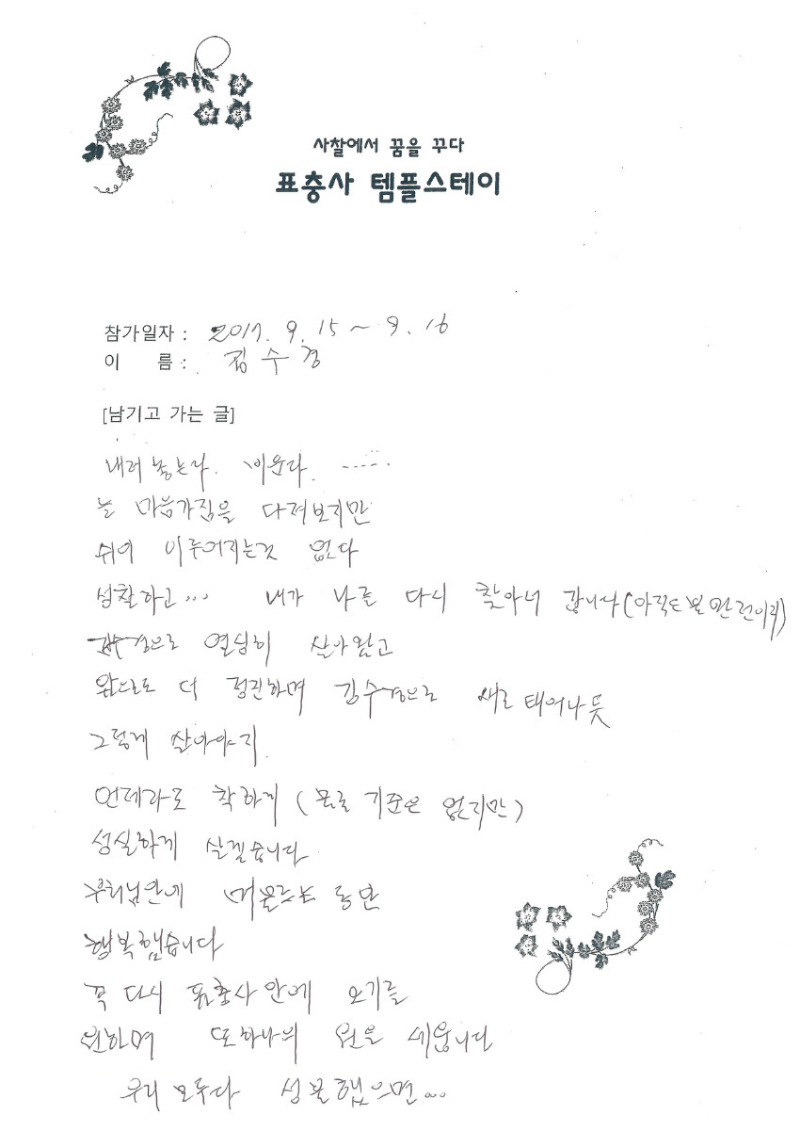 사찰에서 꿈을 꾸다
표충사 템플스테이
참가일자 : 2017. 9. 15 ~ 9. 16
이 름 : 김수경
[남기고 가는 글]
내려놓는다. 비운다. .....
늘 마음가짐을 다져보지만
쉬이 이루어지는것 없다
성찰하고... 내가 나를 다시 찾아서 갑니다 (아직도
으로 열심히 살아왔고
앞으로도 더 정진하며 김수경으로 새로 태어나듯
그렇게 살아야지.
언제라도 착하게 (물론 기준은 없지만)
성실하게 살겠습니다
동안
행복했습니다
꼭 다시 표충사 안에 오기를
원하며 또하나의 원을 세웁니다
우리 모두다 성불했으면...